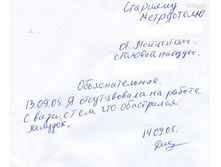 Старшему
Метрдотелю
от Мойщицы
столовой посуды.
Объяснительная.
13.09.05. Я отсутствовала на работе
с вязи с тем что обострился
желудок.
14.09.05.